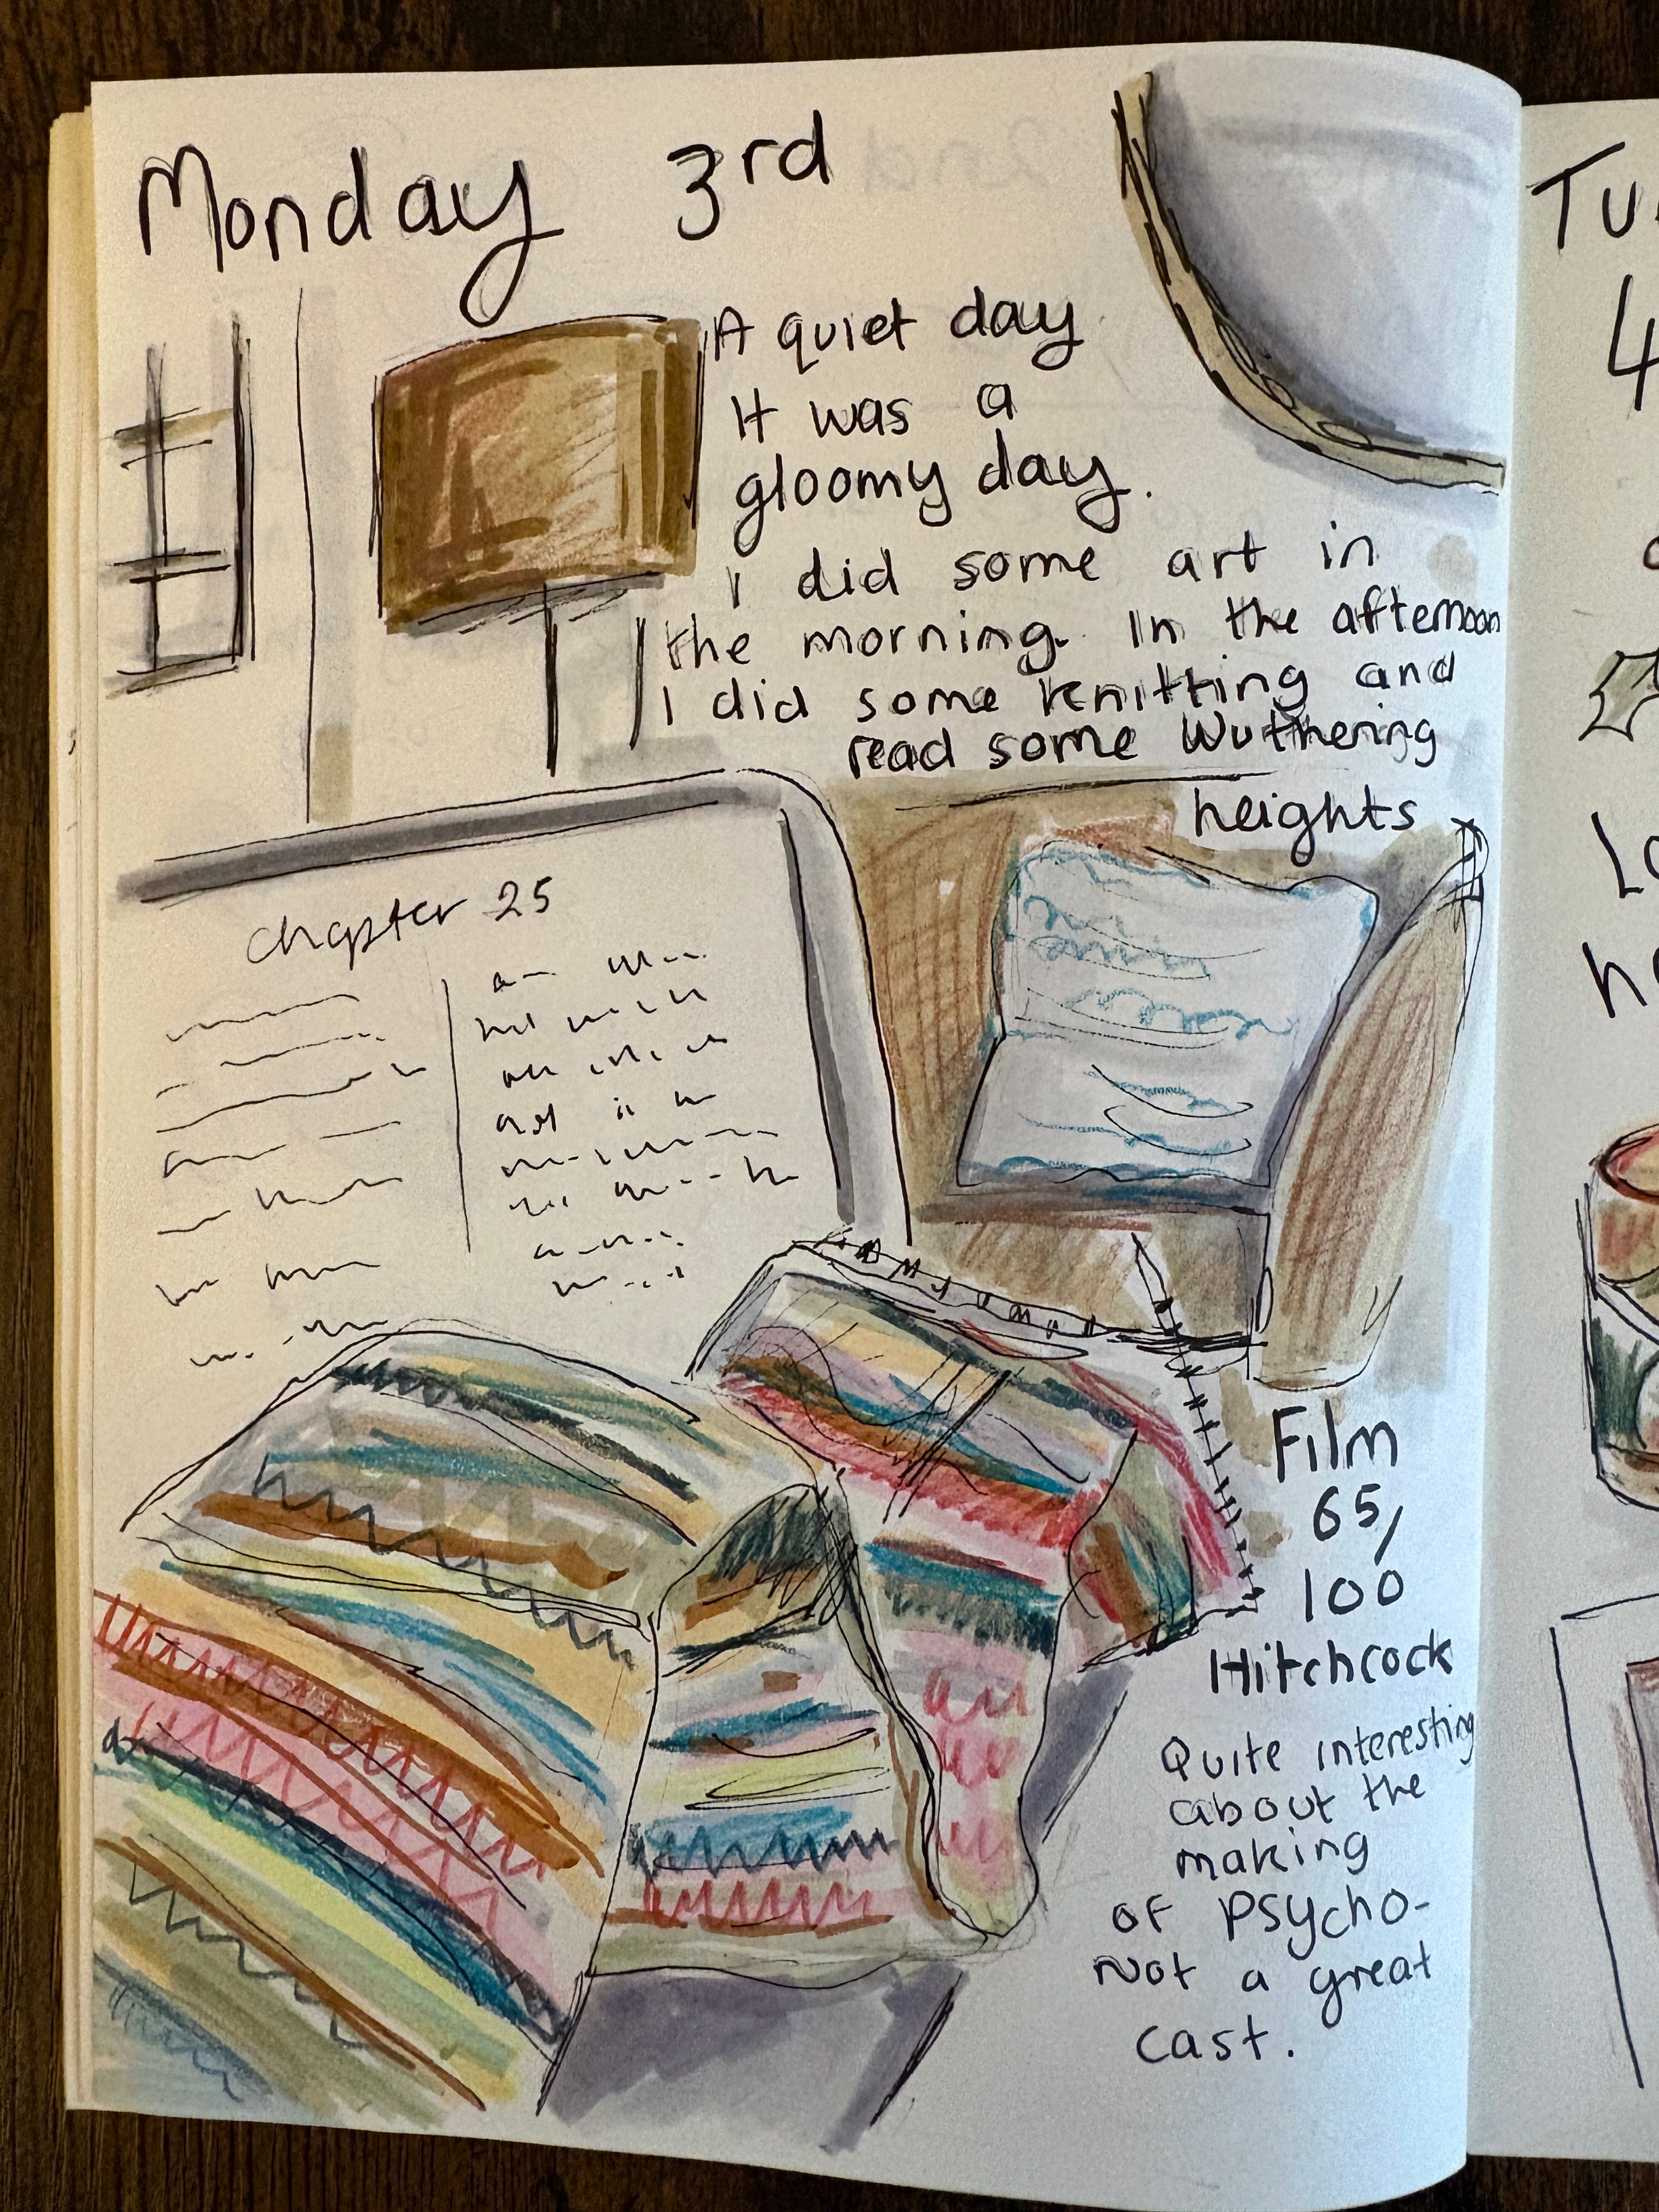 Monday 3rd
A quiet day
It was a
gloomy day.
I did some art in
the morning. In the afternoon
I did some knitting and
read some Wuthering
heights
chapter 25
Film
65/
100
Hitchcock
Quite interesting
about the
making
of psycho-
Not a great
cast.
Tu
4